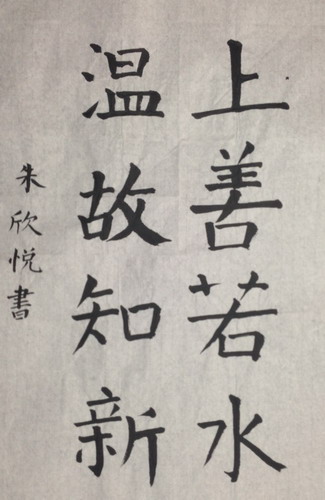 上善若水
温故知新
朱欣悦書